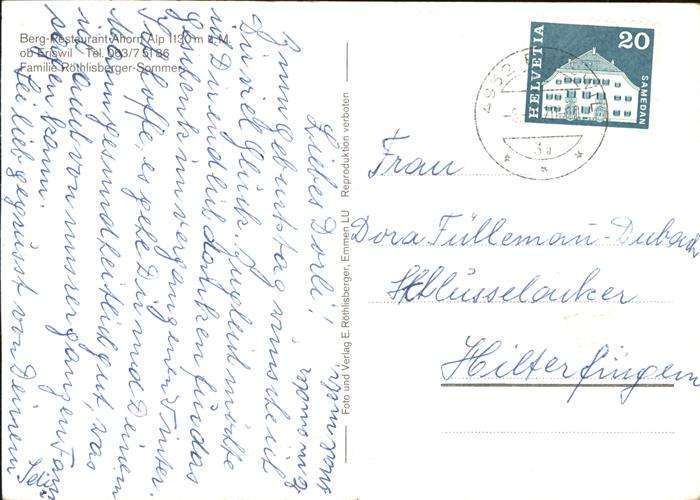 Berg-Restaurant Ahorn Alp 1130 m ü. M.
ob Eriswil Tel. 063/7 51 86
Familie Röthlisberger-Sommer
Liebes Dorli!
Zum Geburtstag wünsche ich
Dir viel Glück. Zugleich möchte
ich Dir endlich danken für das
Geschenk im vergangenen Winter.
Ich hoffe, es gehe Dir und Deinen
gesundheitlich gut, was
ich auch von mir
sagen kann.
Sei lieb gegrüsst von Deinem
Foto und Verlag E. Röthlisberger, Emmen LU Reproduktion verboten
HELVETIA
20
SAMEDAN
4952
Frau
Dora Fülleman-Dubach
Schlüsselacker
Hilterfingen